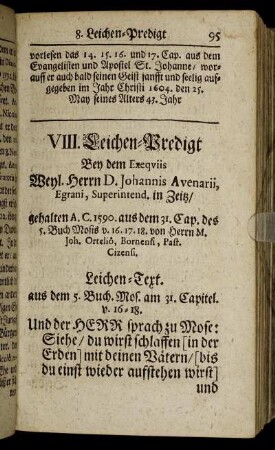 8. Leichen-Predigt 95
vorlesen das 14. 15. 16. und 17. Cap. aus dem
Evangelisten und Apostel St. Johanne / wor-
auff er auch bald seinen Geist sanfft und seelig auf-
gegeben im Jahr Christi 1604. den 25.
May seines Alters 43. Jahr
VIII. Leichen-Predigt
Bey dem Exeqviis
Weyl. Herrn D. Johannis Avenarii,
Egrani, Superintend. in Zeitz /
gehalten A. C. 1590. aus dem 31. Cap. des
5. Buch Mosis v. 16. 17. 18. von Herrn M.
Joh. Orteliô, Bornensi, Past.
Cizensi.
Leichen-Text.
aus dem 5. Buch. Mos. am 31. Capitel.
v. 16-18.
Und der HERR sprach zu Mose:
Siehe / du wirst schlaffen [in der
Erden] mit deinen Vätern / [bis
du einst wieder aufstehen wirst]
und